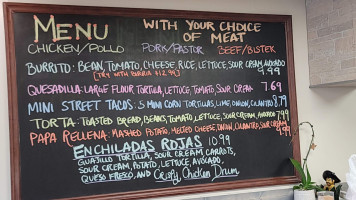 MENU WITH YOUR CHOICE OF MEAT
CHICKEN/POLLO PORK/PASTOR BEEF/BISTEK
BURRITO: BEAN, TOMATO, CHEESE, RICE, LETTUCE, SOUR CREAM, AVOCADO
[TRY WITH BIRRIA +$2.99] 9.99
QUESADILLA: LARGE FLOUR TORTILLA, LETTUCE, TOMATO, SOUR CREAM 7.69
MINI STREET TACOS: 5 MINI CORN TORTILLAS, LIME, ONION, CILANTRO 8.79
TORTA: TOASTED BREAD, BEANS, TOMATO, LETTUCE, SOUR CREAM, AVOCADO 7.99
PAPA RELLENA: MASHED POTATO, MELTED CHEESE, ONION, CILANTRO, SOUR CREAM
9.99
ENCHILADAS ROJAS 10.99
GUAJILLO TORTILLA, SOUR CREAM CARROTS,
SOUR CREAM, POTATO, LETTUCE, AVOCADO,
QUESO FRESCO, AND Crispy Chicken Drum